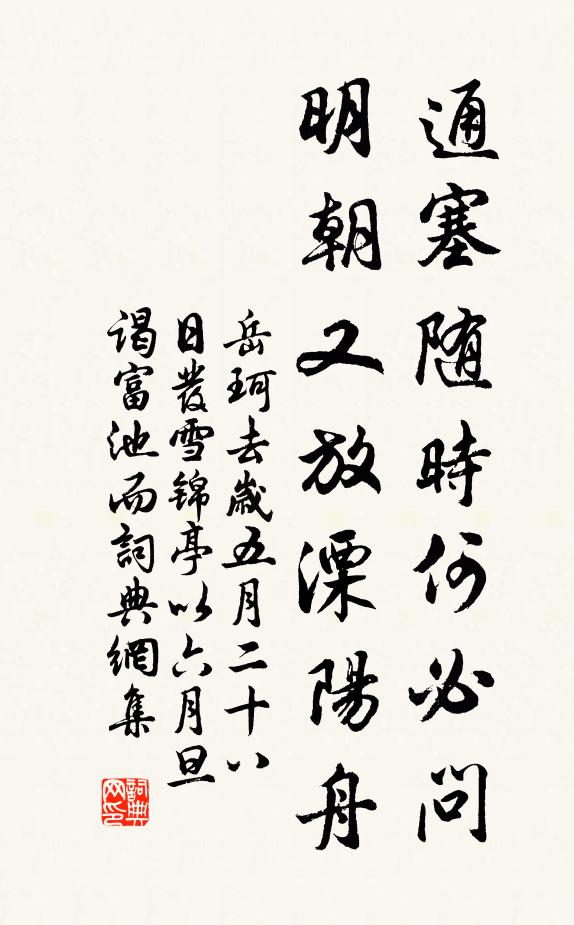 通塞随時何必問
明朝又放溧陽舟
岳珂去歲五月二十八
日發雪錦亭以六月旦
谒富池而詞典網集
詞典
网印